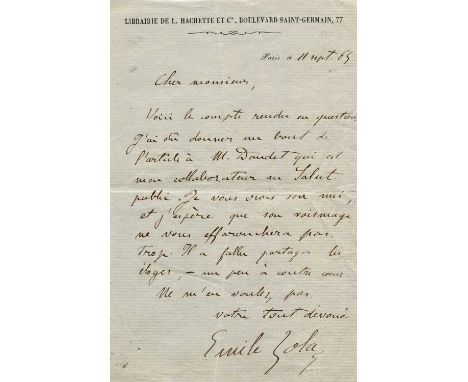 LIBRAIRIE DE L. HACHETTE ET Cie, BOULEVARD SAINT-GERMAIN, 77
Paris le 11 sept. 65
Cher monsieur,
Voici le compte rendu en question
J'ai dû donner un bout de
l'article à M. Daudet qui est
mon collaborateur au Salut
public. Je vous crois son ami,
et j'espère que son voisinage
ne vous effarouchera pas
trop. Il a fallu partager les
éloges, – un peu à contre cœur
Ne m'en voulez pas
votre tout dévoué
Emile Zola